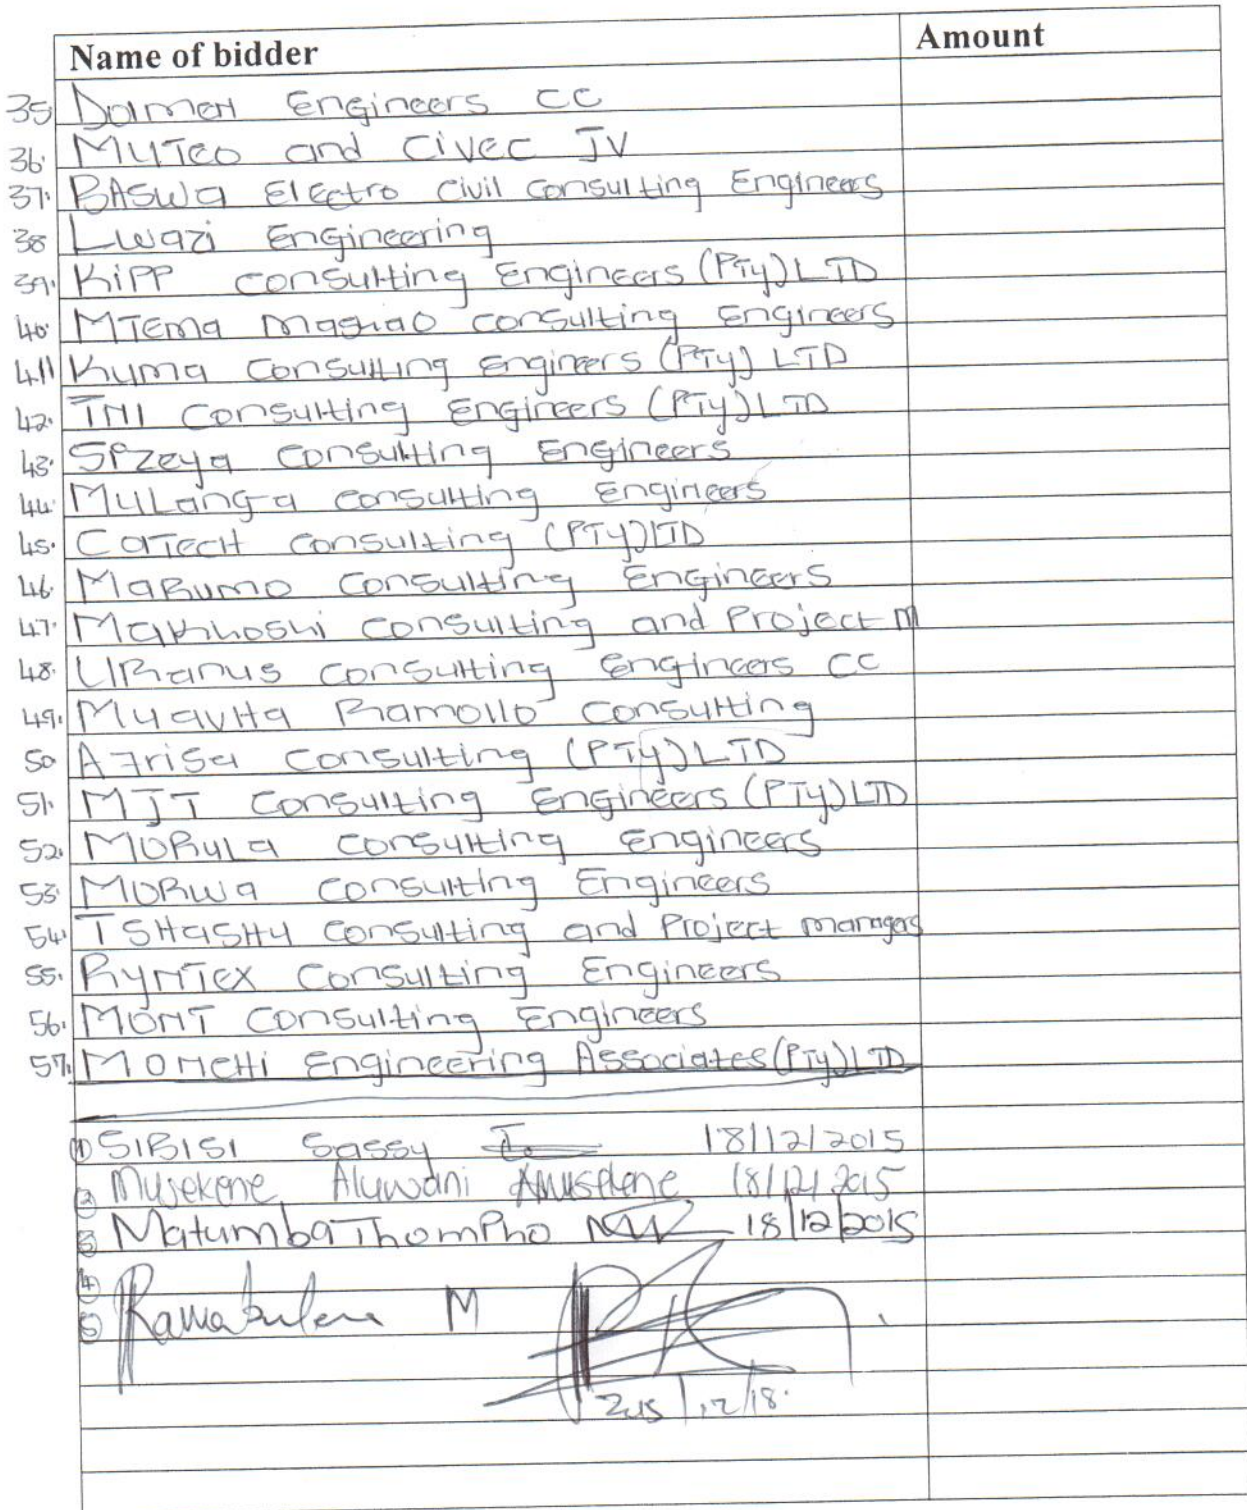 Name of bidder Amount
35. Dolmen Engineers CC
36. MuTeo and Civec JV
37. BASWa Electro Civil Consulting Engineers
38 Lwazi Engineering
39. KiPP consulting Engineers (PTy) LTD
40. MTema Mashao consulting Engineers
41 Kuma Consulting Engineers (PTy) LTD
42. TNI Consulting Engineers (PTy) LTD
43. SPZeya Consulting Engineers
44. MuLanga consulting Engineers
45. CaTech Consulting (PTy) LTD
46. MaRumo Consulting Engineers
47. Makhoshi Consulting and Project M
48. URanus Consulting Engineers CC
49. Muavha Ramollo Consulting
50 Afrisa Consulting (PTy) LTD
51. MJT Consulting Engineers (PTy) LTD
52. MORuLa Consulting Engineers
53. MORwa Consulting Engineers
54. TSHaSHu Consulting and Project managers
55. RynTex Consulting Engineers
56. MONT Consulting Engineers
57. MoneTHi Engineering Associates (PTy) LTD
① SIBISI Sassy 18/12/2015
② Musekene Aluwani 18/12/2015
③ Matumba Thompho 18/12/2015
④
⑤ Ramabulana M
2015/12/18.